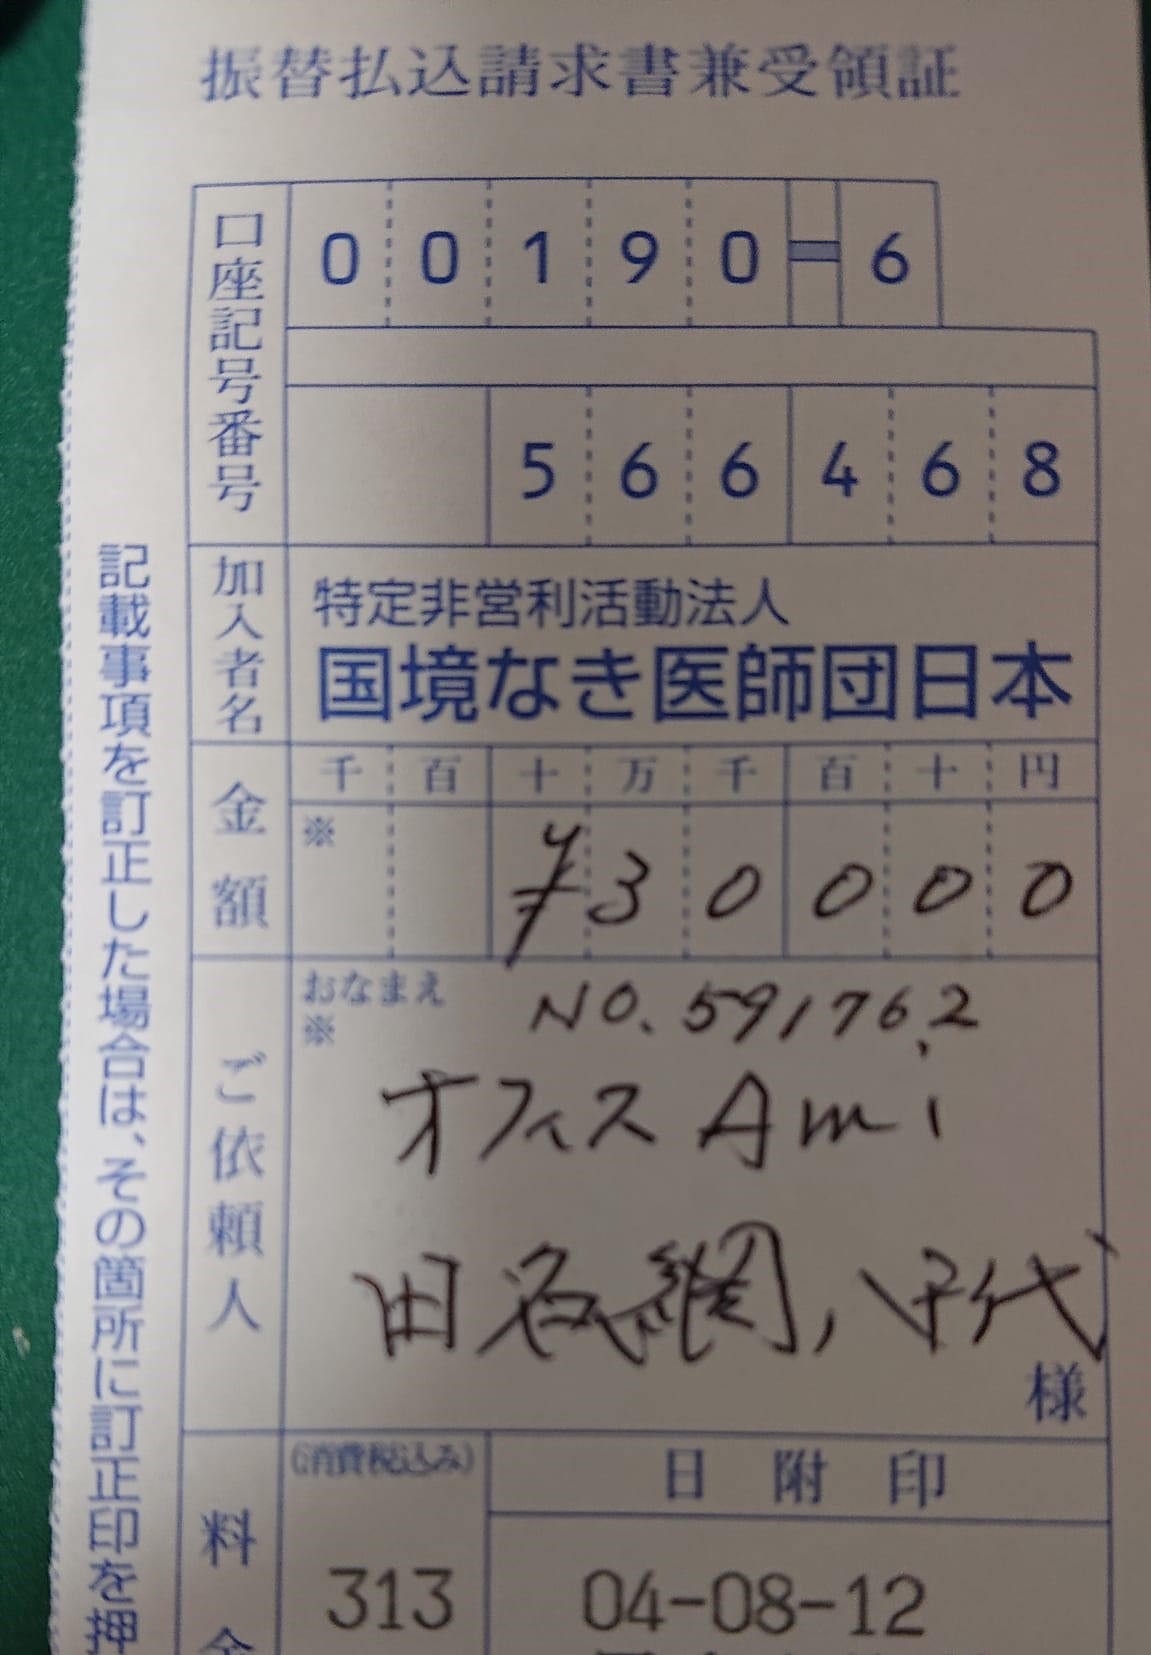 振替払込請求書兼受領証
口座記号番号
00190-6
566468
加入者名
特定非営利活動法人
国境なき医師団日本
金額
千 百 十 万 千 百 十 円
※
¥30000
ご依頼人
おなまえ
※
NO.591762
オフィスAmi
田名網
千代
様
料金
(消費税込み)
313
日附印
04-08-12
記載事項を訂正した場合は、その箇所に訂正印を押